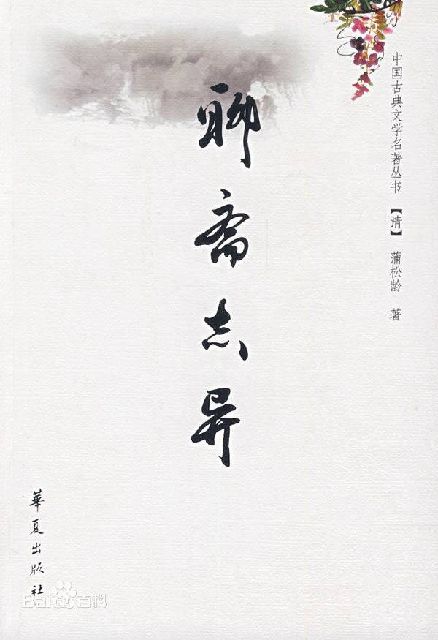 中国古典文学名著丛书【清】 蒲松龄 著
聊斋志异
華夏出版社
Bai百科